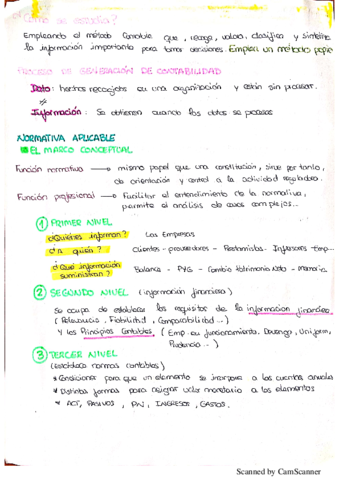 ¿Cómo se estudia?
Empleando el método contable que, recoge, valora, clasifica y sintetiza
la información importante para tomar decisiones. Emplea un método propio
PROCESO DE GENERACIÓN DE CONTABILIDAD
Dato: hechos recogidos en una organización y están sin procesar.
Información: Se obtienen cuando los datos se procesan
NORMATIVA APLICABLE
EL MARCO CONCEPTUAL
Función normativa → mismo papel que una constitución, sirve por tanto,
de orientación y control a la actividad reguladora.
Función profesional → Facilitar el entendimiento de la normativa,
permite el análisis de casos complejos...
1 PRIMER NIVEL
¿Quiénes informan? Las Empresas
¿A quién? Clientes - proveedores - Prestamistas - Inversores - Emp...
¿Qué información suministran? Balance - PYG - Cambio Patrimonio Neto - Memoria
2 SEGUNDO NIVEL (información financiera)
Se ocupa de establecer los requisitos de la información financiera
(Relevancia, Fiabilidad, Comparabilidad...)
Y los Principios Contables, (Emp. en funcionamiento, Devengo, Uniform,
Prudencia...)
3 TERCER NIVEL
(establece normas contables)
* Condiciones para que un elemento se incorpore a las cuentas anuales
* Distintas formas para asignar valor monetario a los elementos
* ACT, PASIVOS, PN, INGRESOS, GASTOS.
Scanned by CamScanner